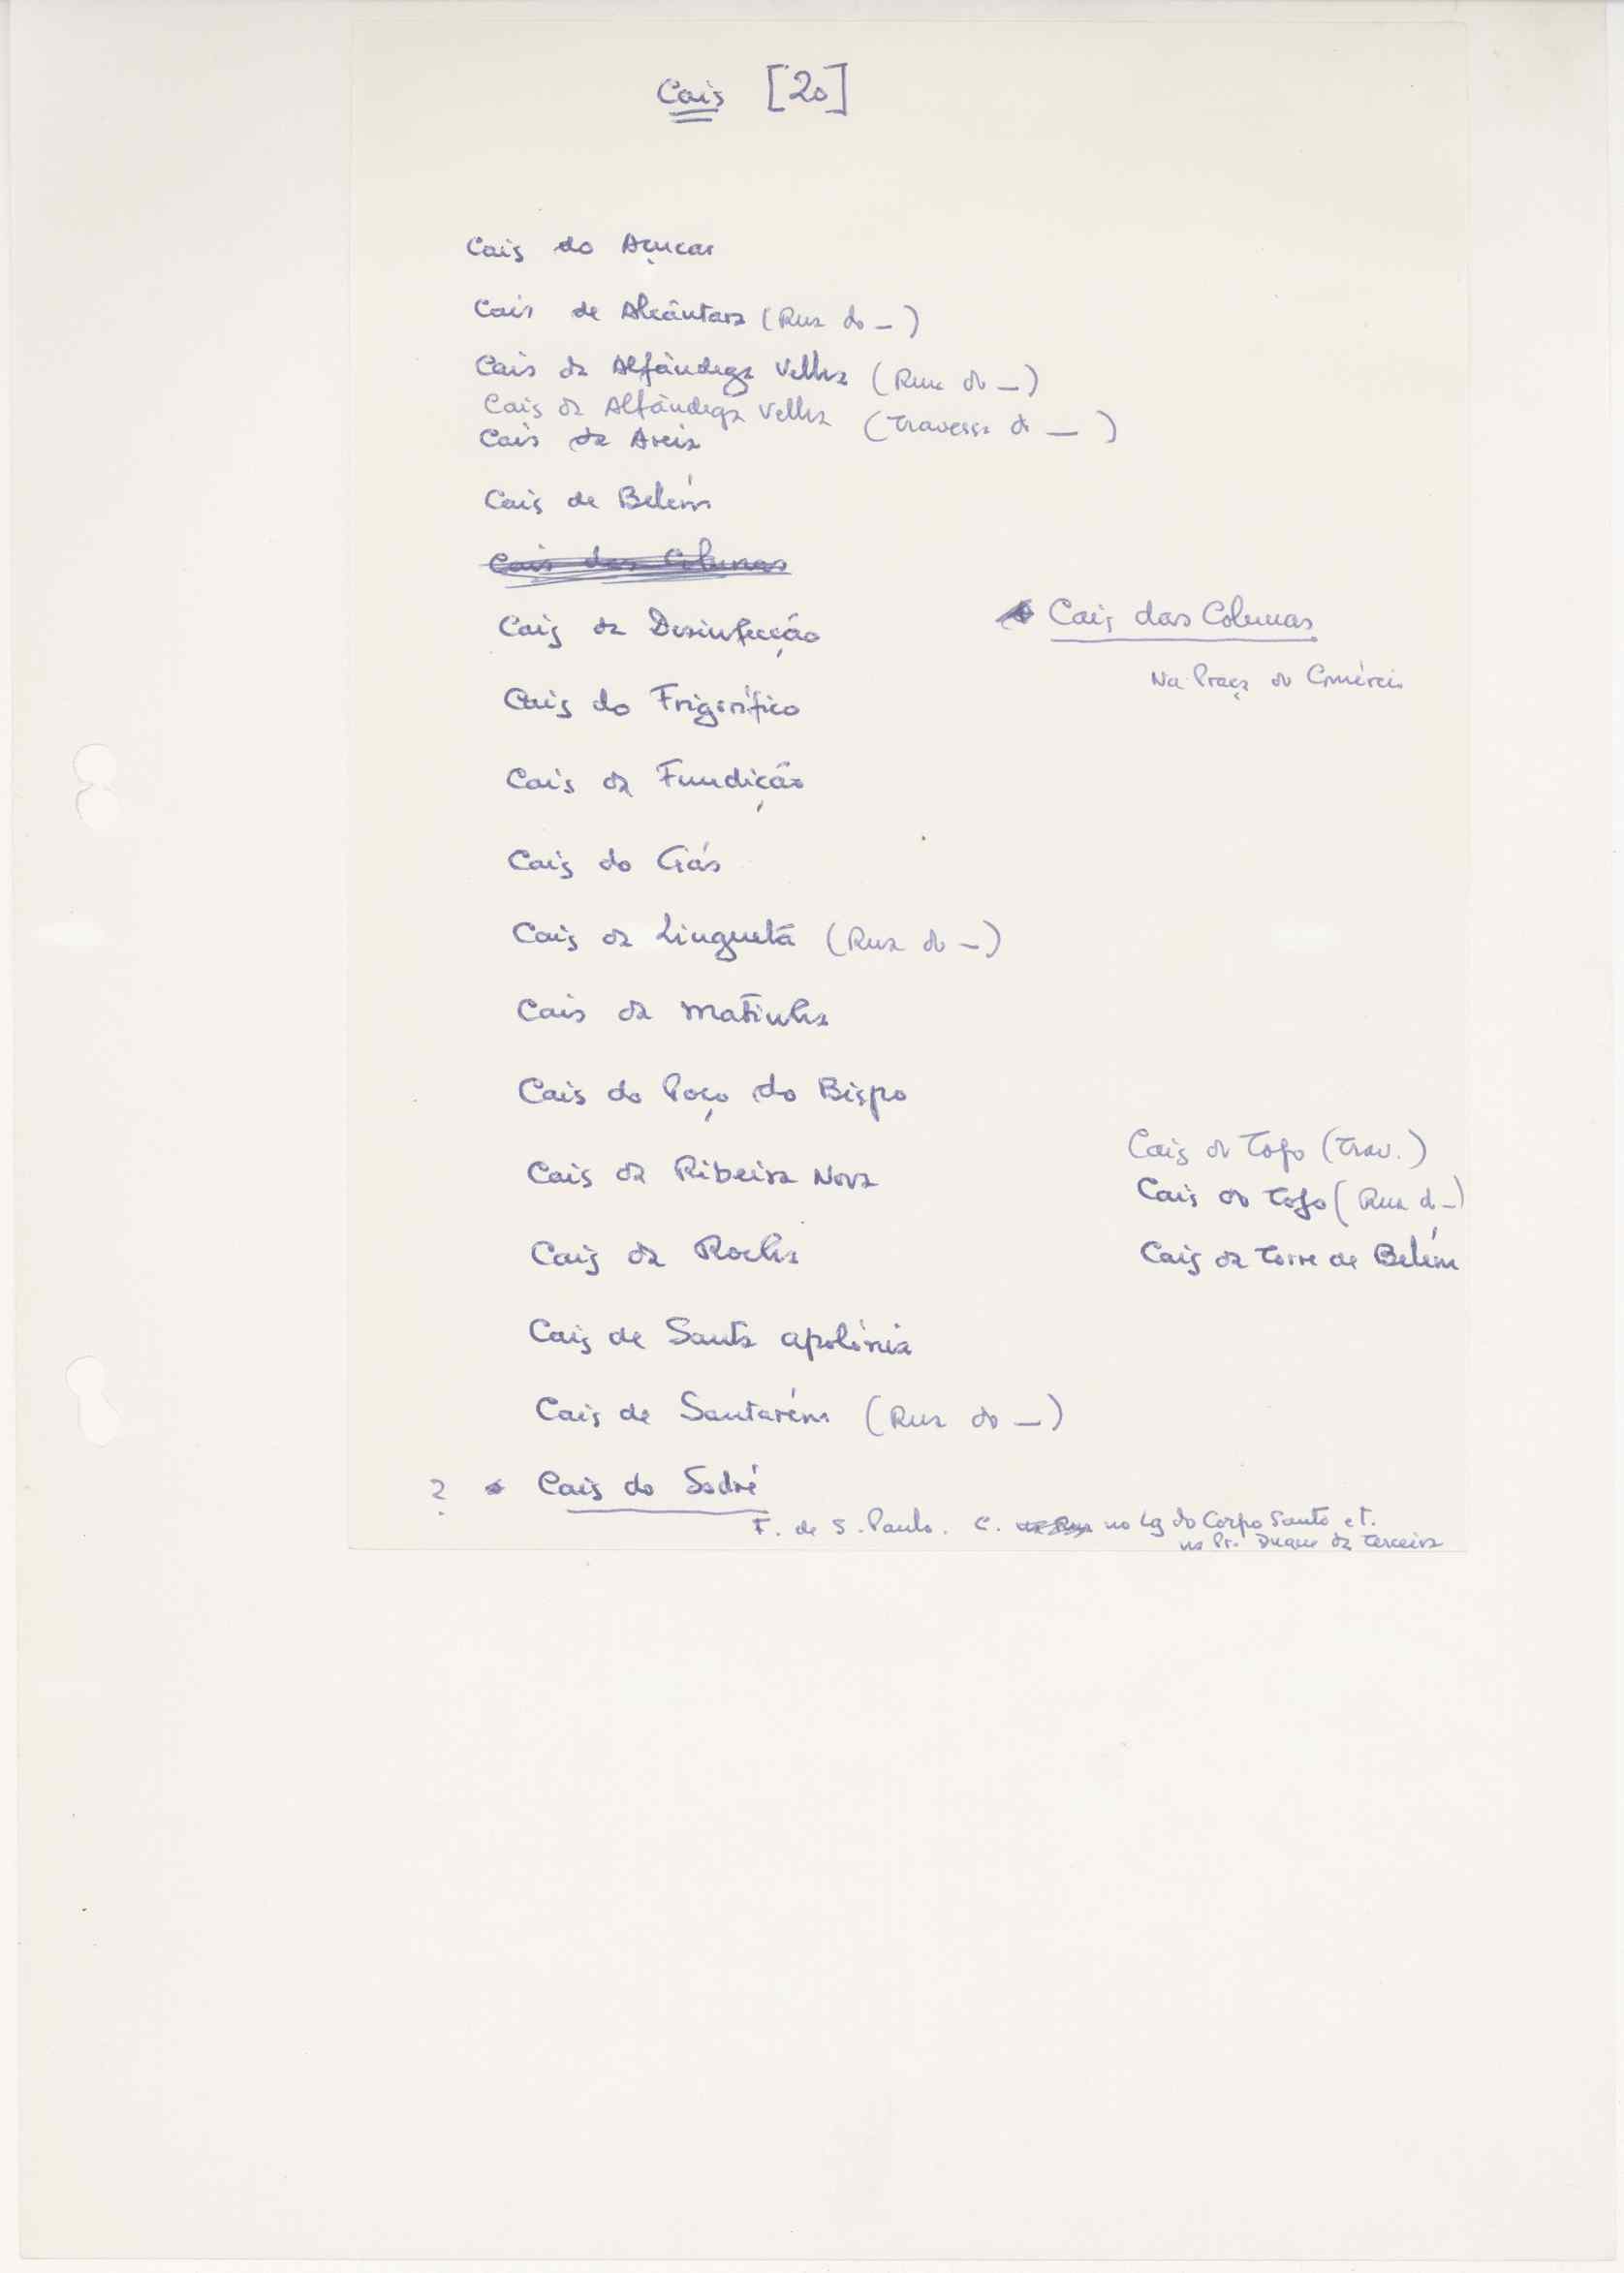 Cais [20]
Cais do Açucar
Cais de Alcântara (Rua do —)
Cais da Alfândega Velha (Rua do —)
Cais da Alfândega Velha (Travessa do —)
Cais da Areia
Cais de Belém
Cais das Colunas
Cais da Desinfecção
Cais das Colunas
Na Praça do Comércio
Cais do Frigorífico
Cais da Fundição
Cais do Gás
Cais da Lingueta (Rua do —)
Cais da Matinha
Cais do Poço do Bispo
Cais da Ribeira Nova
Cais do Tojo (Trav.)
Cais do Tojo (Rua do —)
Cais da Rocha
Cais da Torre de Belém
Cais de Santa Apolónia
Cais de Santarém (Rua do —)
? Cais do Sodré
F. de S. Paulo. C. no Lg do Corpo Santo e T.
na Pr. Duque da Terceira